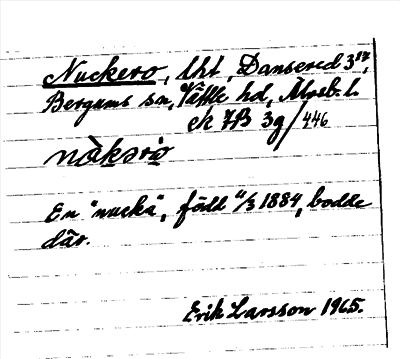 Nuckero, lht, Dansered 3¹⁷,
Bergums sn, Vättle hd, Älvsb. l.
ek 7B 3g/446
En "nucka", född 4/3 1884, bodde
där.
Erik Larsson 1965.